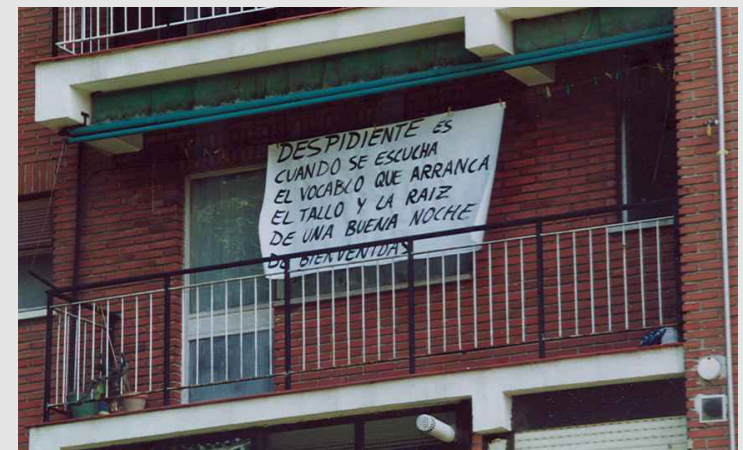 DESPIDIENTE ES
CUANDO SE ESCUCHA
EL VOCABLO QUE ARRANCA
EL TALLO Y LA RAIZ
DE UNA BUENA NOCHE
DE BIENVENIDAS